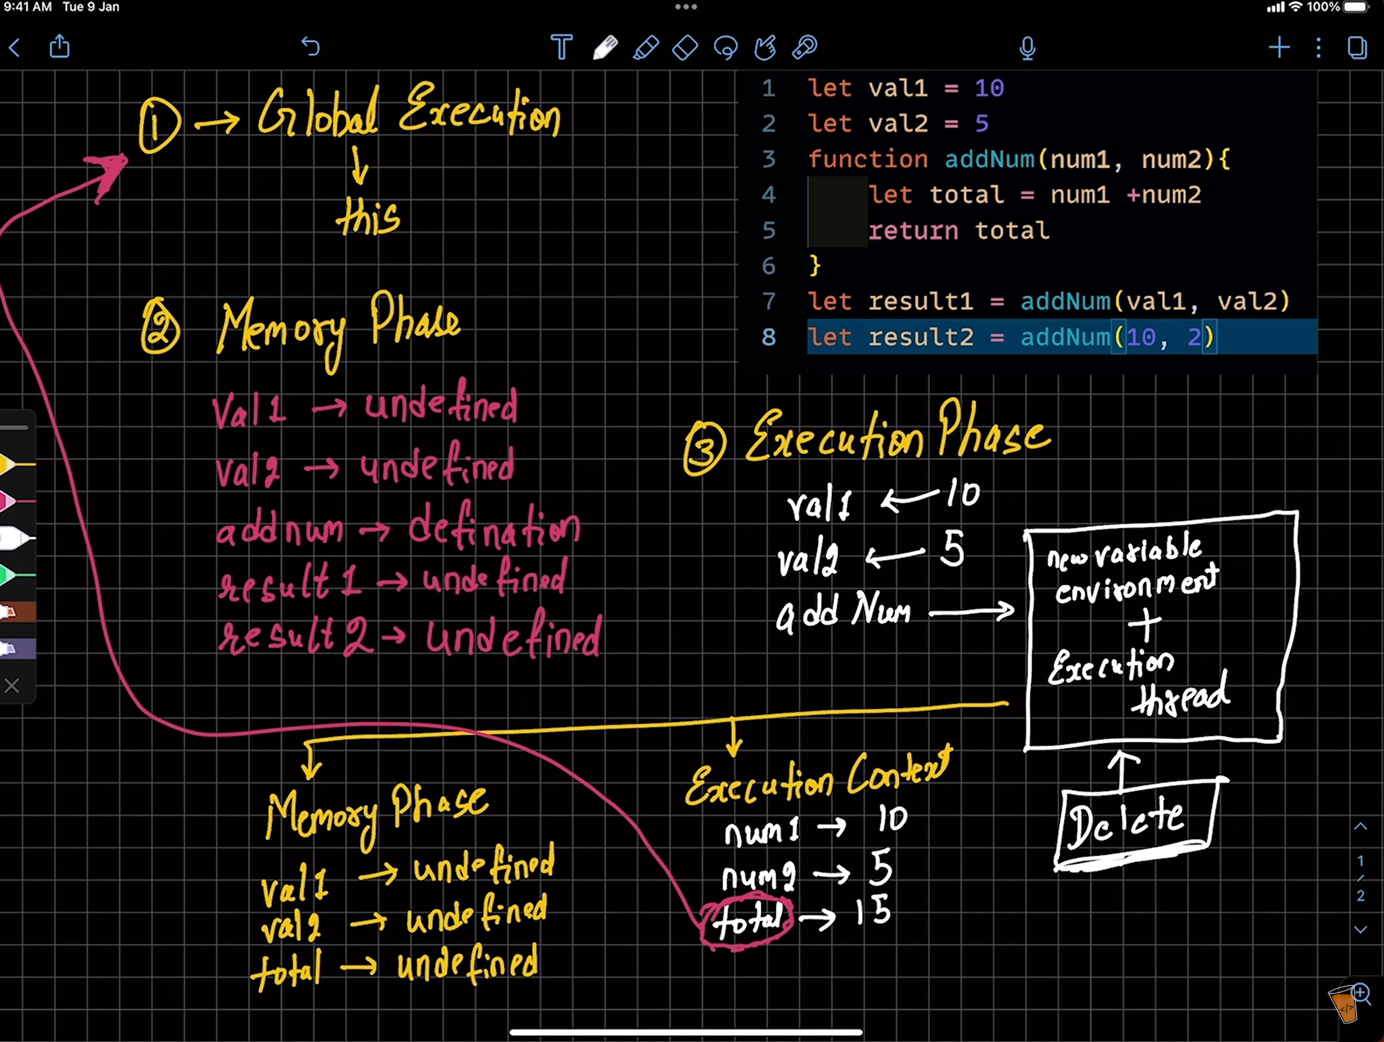 9:41 AM Tue 9 Jan
100%
① → Global Execution
this
1 let val1 = 10
2 let val2 = 5
3 function addNum(num1, num2){
4 let total = num1 +num2
5 return total
6 }
7 let result1 = addNum(val1, val2)
8 let result2 = addNum(10, 2)
② Memory Phase
val1 → undefined
val2 → undefined
addnum → defination
result1 → undefined
result2 → undefined
③ Execution Phase
val1 ← 10
val2 ← 5
addNum →
new variable
environment
+
Execution
thread
Delete
Memory Phase
val1 → undefined
val2 → undefined
total → undefined
Execution Context
num1 → 10
num2 → 5
total → 15
1
/
2